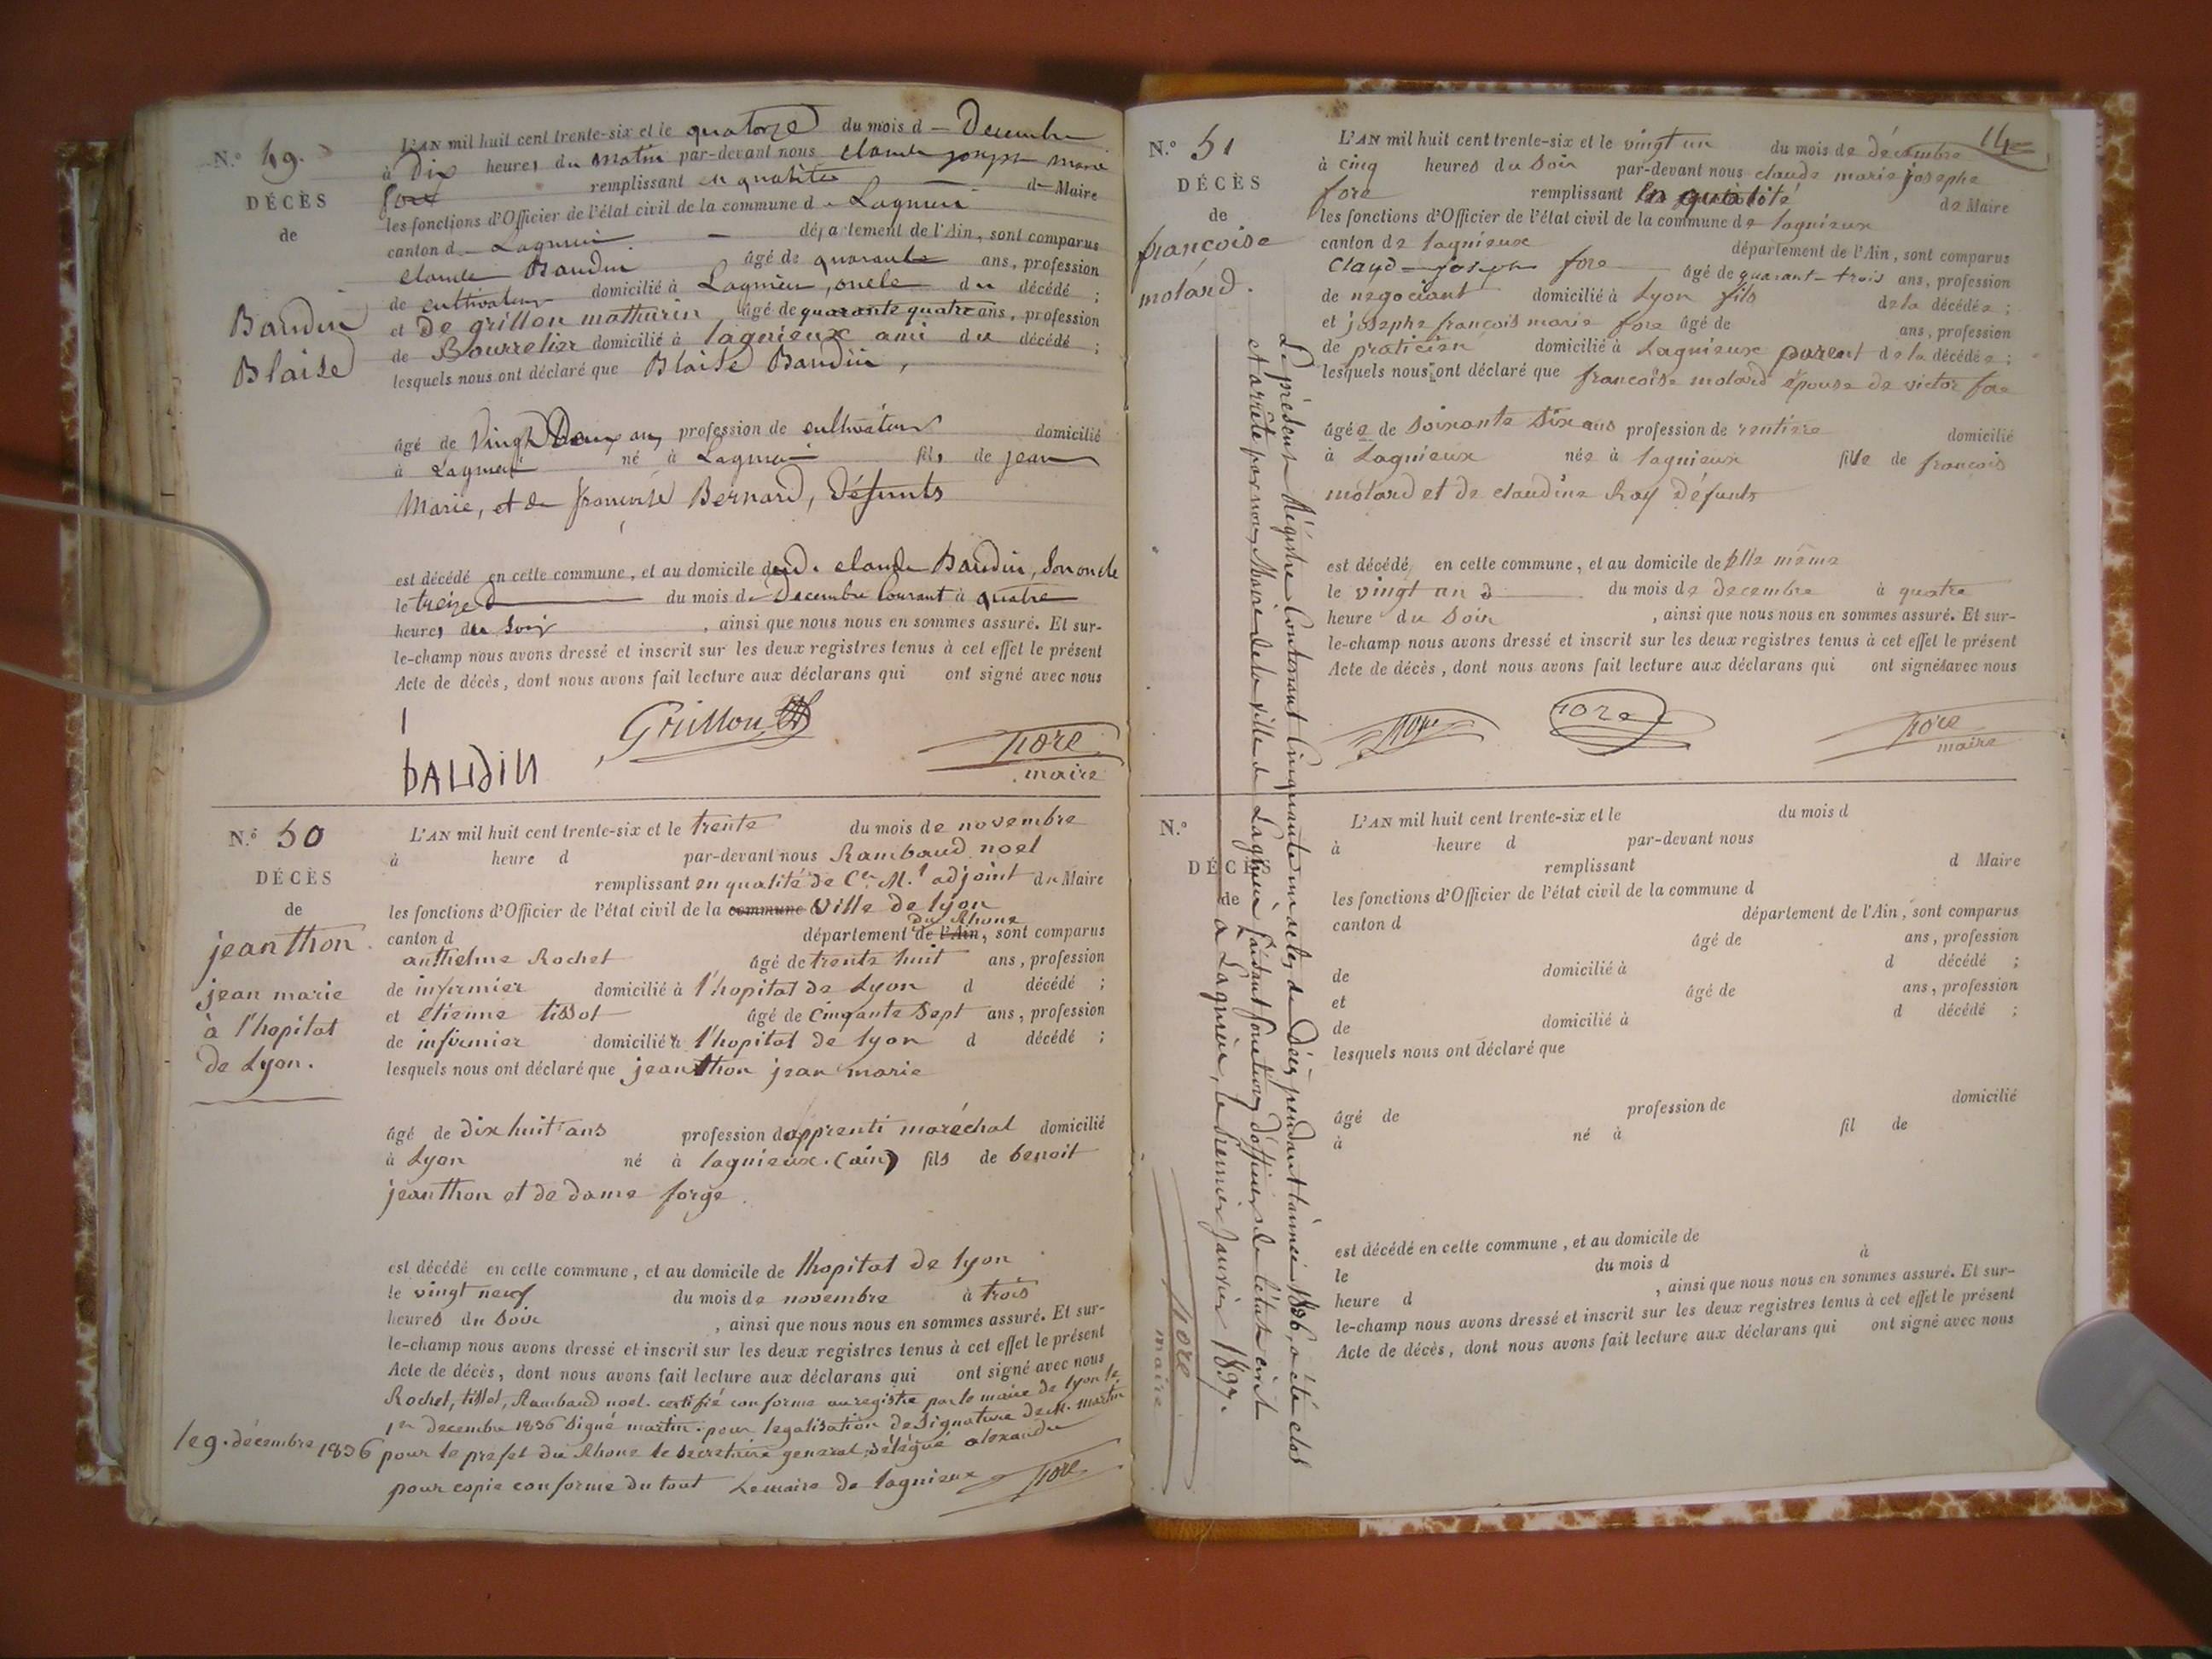 N.° 49.
DÉCÈS
de
Baudin
Blaise
L'AN mil huit cent trente-six et le quatorze du mois d Decembre
à Dix heures du matin par-devant nous claude joseph marie
fore remplissant en qualité de Maire
les fonctions d'Officier de l'état civil de la commune d Lagnieu
canton d Lagnieu département de l'Ain, sont comparus
claude Baudin âgé de quarante ans, profession
de cultivateur domicilié à Lagnieu, oncle du décédé ;
et De grillon mathurin âgé de quarante quatre ans, profession
de Bourrelier domicilié à lagnieux ami du décédé ;
lesquels nous ont déclaré que Blaise Baudin,
âgé de Vingt Deux ans, profession de cultivateur domicilié
à Lagnieu né à Lagnieu fils de jean
Marie, et de françoise Bernard, défunts
est décédé en cette commune, et au domicile dud. claude Baudin, son oncle
le treize du mois de Decembre courant à quatre
heures du soir , ainsi que nous nous en sommes assuré. Et sur-
le-champ nous avons dressé et inscrit sur les deux registres tenus à cet effet le présent
Acte de décès, dont nous avons fait lecture aux déclarans qui ont signé avec nous
BAUDIN Grillon fore
maire
N.° 50
DÉCÈS
de
jeanthon
jean marie
à l'hopital
de Lyon.
L'AN mil huit cent trente-six et le trente du mois de novembre
à heure d par-devant nous Rambaud noel
remplissant en qualité de Cer M.l adjoint du Maire
les fonctions d'Officier de l'état civil de la commune Ville de lyon
du Rhone
canton d département de l'Ain, sont comparus
anthelme Rochet âgé de trente huit ans, profession
de infirmier domicilié à l'hopital de Lyon d décédé ;
et etienne tissot âgé de cinqante sept ans, profession
de infirmier domicilié à l'hopital de lyon d décédé ;
lesquels nous ont déclaré que jeanthon jean marie
âgé de dix huit ans profession d'apprenti maréchal domicilié
à Lyon né à lagnieux (ain) fils de benoit
jeanthon et de dame forge
est décédé en cette commune, et au domicile de lhopital de lyon
le vingt neuf du mois de novembre à trois
heures du soir , ainsi que nous nous en sommes assuré. Et sur-
le-champ nous avons dressé et inscrit sur les deux registres tenus à cet effet le présent
Acte de décès, dont nous avons fait lecture aux déclarans qui ont signé avec nous
Rochet, tissot, Rambaud noel. certifié conforme au registre par le maire de lyon le
1er decembre 1836 signé martin. pour legalisation de Signature de M. martin
le 9. décembre 1836 pour le prefet du Rhone le secretaire general délégué alexandre
pour copie conforme du tout Le maire de lagnieux fore
14
N.° 51
DÉCÈS
de
françoise
molard.
L'AN mil huit cent trente-six et le vingt un du mois de décembre
à cinq heures du soir par-devant nous claude marie josephe
fore remplissant en qualité de Maire
les fonctions d'Officier de l'état civil de la commune de lagnieux
canton de lagnieux département de l'Ain, sont comparus
Claud joseph fore âgé de quarant-trois ans, profession
de négociant domicilié à Lyon fils de la décédée ;
et josephe françois marie fore âgé de ans, profession
de praticien domicilié à Lagnieux parent de la décédée ;
lesquels nous ont déclaré que francoise molard épouse de victor fore
âgée de soixante six ans profession de rentiere domicilié
à Lagnieux née à lagnieux fille de francois
molard et de claudine Roy défunts
est décédé en cette commune, et au domicile de elle même
le vingt un du mois de decembre à quatre
heure du soir , ainsi que nous nous en sommes assuré. Et sur-
le-champ nous avons dressé et inscrit sur les deux registres tenus à cet effet le présent
Acte de décès, dont nous avons fait lecture aux déclarans qui ont signés avec nous
fore fore fore
maire
Le présent Régistre Contenant Cinquante un actes de Décès pendant l'année 1836, a été clos
et arrêté par nous, Maire de la ville de Lagnieu faisant fonctions d'officier de l'état civil
a Lagnieu, le premier janvier 1837.
fore
maire
N.°
DÉCÈS
de
L'AN mil huit cent trente-six et le du mois d
à heure d par-devant nous
remplissant d Maire
les fonctions d'Officier de l'état civil de la commune d
canton d département de l'Ain, sont comparus
âgé de ans, profession
de domicilié à d décédé ;
et âgé de ans, profession
de domicilié à d décédé ;
lesquels nous ont déclaré que
âgé de profession de domicilié
à né à fil de
est décédé en cette commune, et au domicile de
le du mois d à
heure d , ainsi que nous nous en sommes assuré. Et sur-
le-champ nous avons dressé et inscrit sur les deux registres tenus à cet effet le présent
Acte de décès, dont nous avons fait lecture aux déclarans qui ont signé avec nous